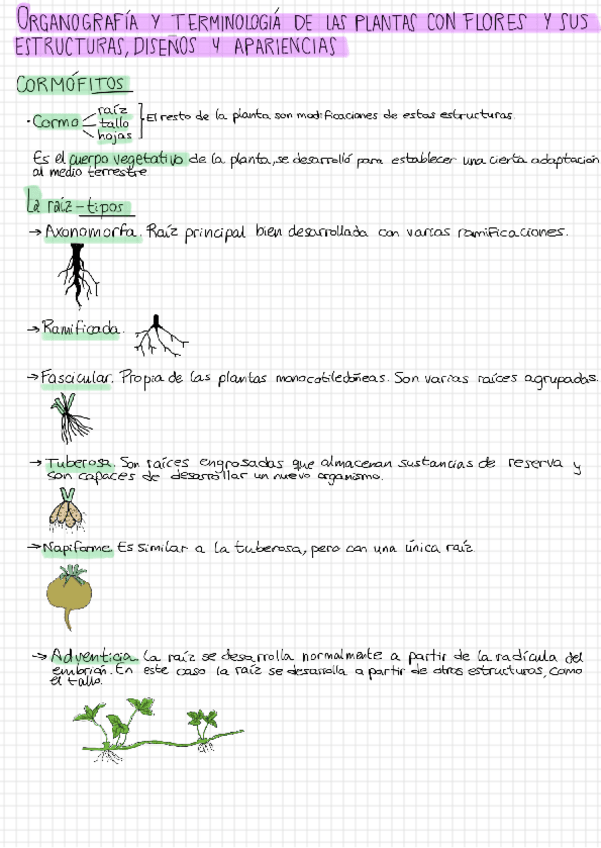 ORGANOGRAFÍA Y TERMINOLOGIÁ DE LAS PLANTAS CON FLORES Y SUS
ESTRUCTURAS, DISEÑOS Y APARIENCIAS
CORMÓFITOS
· Cormo raíz tallo hojas El resto de la planta son modificaciones de estas estructuras.
Es el cuerpo vegetativo de la planta, se desarrolló para establecer una cierta adaptación
al medio terrestre
La raíz - tipos
→ Axonomorfa. Raíz principal bien desarrollada con varias ramificaciones.
→ Ramificada.
→ Fascicular. Propia de las plantas monocotiledóneas. Son varias raíces agrupadas.
→ Tuberosa. Son raíces engrosadas que almacenan sustancias de reserva y
son capaces de desarrollar un nuevo organismo.
→ Napiforme. Es similar a la tuberosa, pero con una única raíz
→ Adventicia. La raíz se desarrolla normalmente a partir de la radícula del
embrión. En este caso la raíz se desarolla a partir de otras estructuras, como
el tallo.